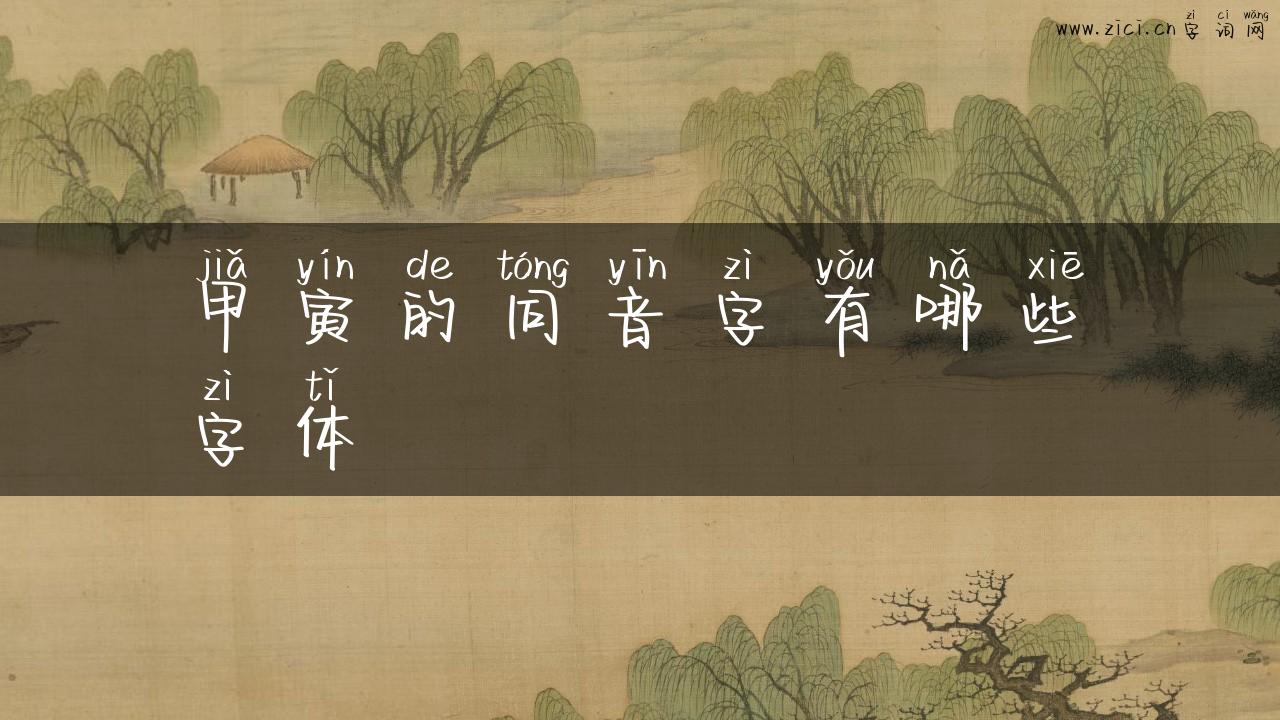 zì cí wǎng
www.zici.cn 字 词 网
jiǎ yín de tóng yīn zì yǒu nǎ xiē
甲 寅 的 同 音 字 有 哪 些
zì tǐ
字 体